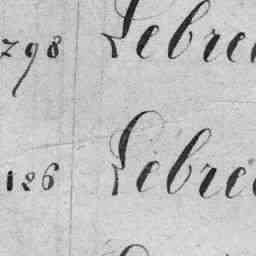 798 Lebre
126 Lebre